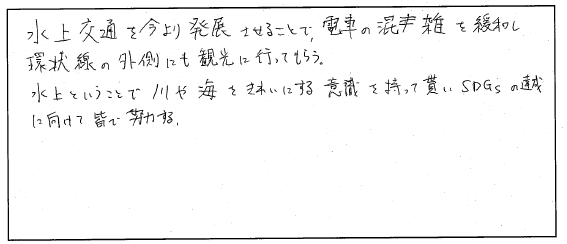 水上交通を今より発展させることで、電車の混雑を緩和し
環状線の外側にも観光に行ってもらう。
水上ということで川や海をきれいにする意識を持って貰いSDGsの達成
に向けて皆で努力する。